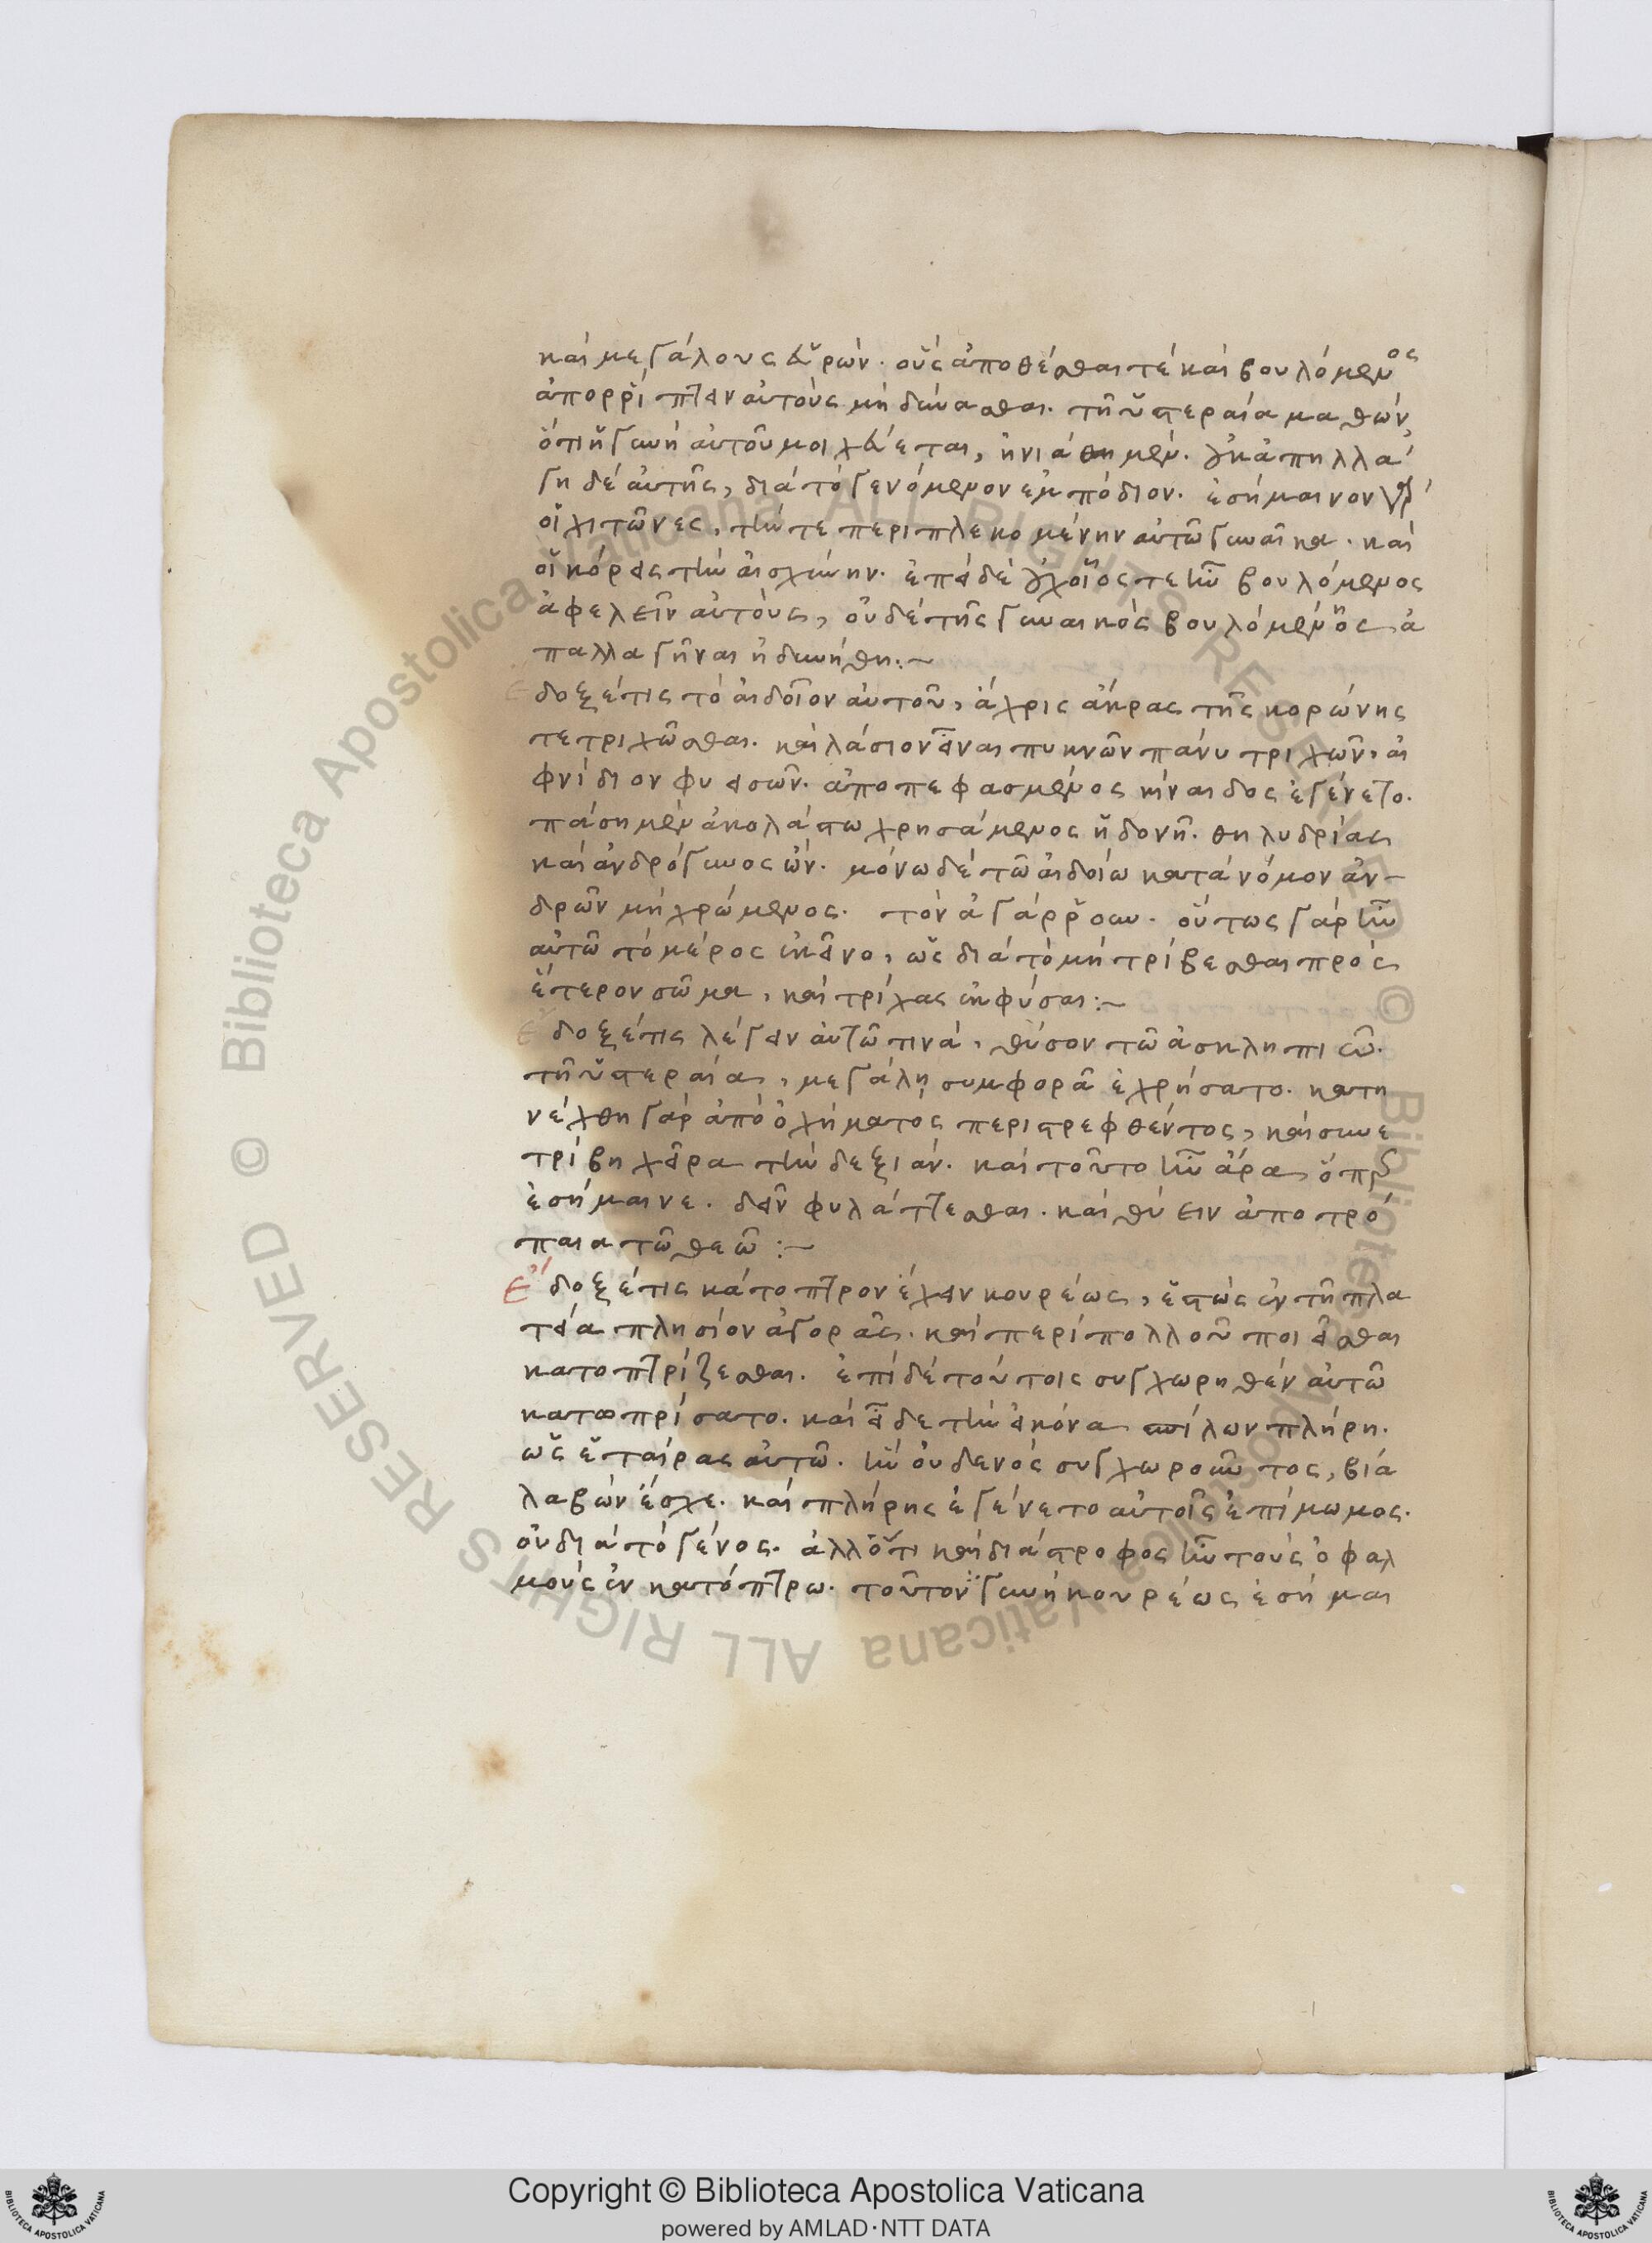 καὶ μεγάλους εὑρών. οὓς ἀποθέσθαι τὲ καὶ βουλόμενος
ἀπορρίπτειν αὐτοὺς μὴ δύνασθαι. τῆ ὑστεραία μαθὼν
ὅτι ἡ γυνὴ αὐτοῦ μοιχεύεται, ἠνιάθη μέν. οὐκ ἀπηλλά
γη δὲ αὐτῆς, διὰ τὸ γενόμενον ἐμπόδιον. ἐσήμαινον γὰρ
οἱ χιτῶνες, τὴν τε περιπλεκομένην αὐτῶ γυναῖκα. καὶ
οἱ κόρεις τὴν αἰσχύνην. ἐπεὶ δὲ οὐχ οἷος τε ἦν βουλόμενος
ἀφελεῖν αὐτοὺς, οὐδὲ τῆς γυναικὸς βουλόμενος ἀ
παλλαγῆναι ἠδυνήθη:~
Ἔδοξέ τις τὸ αἰδοῖον αὐτοῦ, ἄχρις ἄκρας τῆς κορώνης
τετριχῶσθαι. καὶ λάσιον εἶναι πυκνῶν πάνυ τριχῶν, αἰ
φνίδιον φυεισῶν. ἀποπεφασμένος κίναιδος ἐγένετο.
πάση μὲν ἀκολάστω χρησάμενος ἡδονῆ. θηλυδρίας
καὶ ἀνδρόγυνος ὤν. μόνω δὲ τῶ αἰδοίω κατὰ νόμον ἀν-
δρῶν μὴ χρώμενος. τὸν ἀγάρροουν. οὕτως γὰρ ἦν
αὐτῶ τὸ μέρος ἐκεῖνο, ὡς διὰ τὸ μὴ τρίβεσθαι πρὸς
ἕτερον σῶμα, καὶ τρίχας ἐκφύσαι:~
Ἔδοξέ τις λέγειν αὐτῶ τινὰ, θύσον τῶ ἀσκληπιῶ.
τῆ ὑστεραία, μεγάλη συμφορᾶ ἐχρήσατο. κατη
νέχθη γὰρ ἀπὸ ὀχήματος περιστρεφθέντος, καὶ συνε
τρίβη χεῖρα τὴν δεξιάν. καὶ τοῦτο ἦν ἄρα ὅπερ
ἐσήμαινε. δεῖν φυλάττεσθαι. καὶ θύειν ἀποτρό
παια τῶ θεῶ:~
Ἔδοξέ τις κάτοπτρον ἔχειν κουρέως, ἑστὼς ἐν τῆ πλα
τεία πλησίον ἀγορᾶς. καὶ περὶ πολλοῦ ποιεῖσθαι
κατοπτρίζεσθαι. ἐπὶ δὲ τούτοις συγχωρηθὲν αὐτῶ
κατοπρίσατο. καὶ εἶδε τὴν εἰκόνα σπίλων πλήρη.
ὡς ἑταίρας αὐτῶ. ἣν οὐδενὸς συγχωροῦντος, βία
λαβὼν ἔσχε. καὶ πλήρης ἐγένετο αὐτοῖς ἐπίμωμος.
οὐ διὰ τὸ γένος. ἀλλ' ὅτι καὶ διάστροφος ἦν τοὺς ὀφαλ
μοὺς ἐν κατόπτρω. τοῦτον γυνὴ κουρέως ἐσήμαι
Copyright © Biblioteca Apostolica Vaticana
powered by AMLAD·NTT DATA